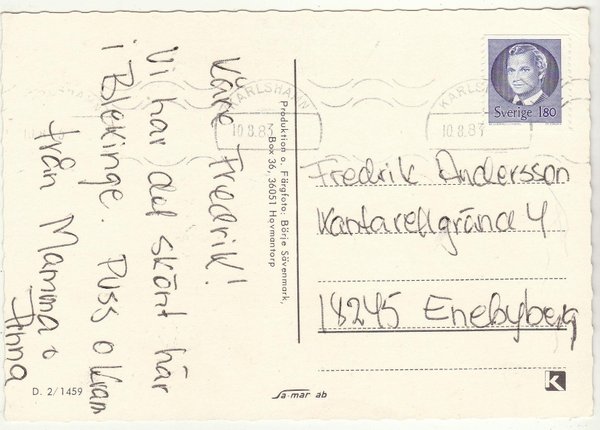 Käre Fredrik!
Vi har det skönt här
i Blekinge. Puss o kram
från Mamma o
Anna
Produktion o. Färgfoto: Börje Sävenmark,
Box 36, 36051 Hovmantorp
KARLSHAMN
10.8.83
KARLSHAMN
10.8.83
Sverige 180
Fredrik Andersson
Kantarellgränd 4
18245 Enebyberg
D. 2/1459
Sa-mar ab
K